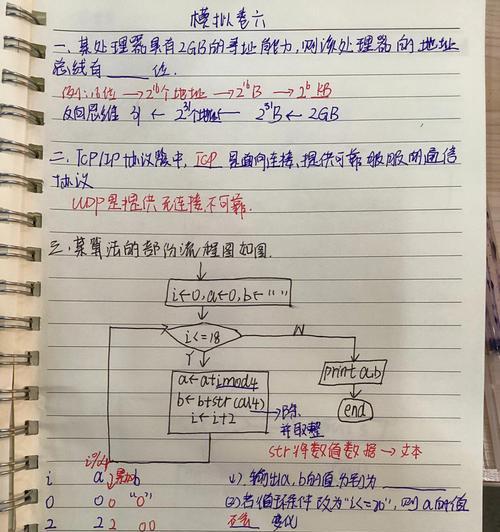 模拟卷六
一、某处理器具有2GB的寻址能力,则该处理器的地址
总线有____位.
例:16位→2^16个地址→2^16B→2^6KB
反向思维 31←2^31个地址←2^31B←2GB
二、TCP/IP协议族中,TCP是面向连接、提供可靠的通信
协议
UDP是提供无连接、不可靠.
三、某算法的部份流程图如图.
i←0,a←0,b←""
i<=18
N
Y
a←a+i mod 4
b←b+str(a\4)
i←i+2
print a,b
end
并取整
str将数值数据→文本
i a b
累加
(1)、输出a,b的值为别为____
0 0 0 "0"
(2)若循环条件改为"i<=20",则a的值
2 2 2 00
变化